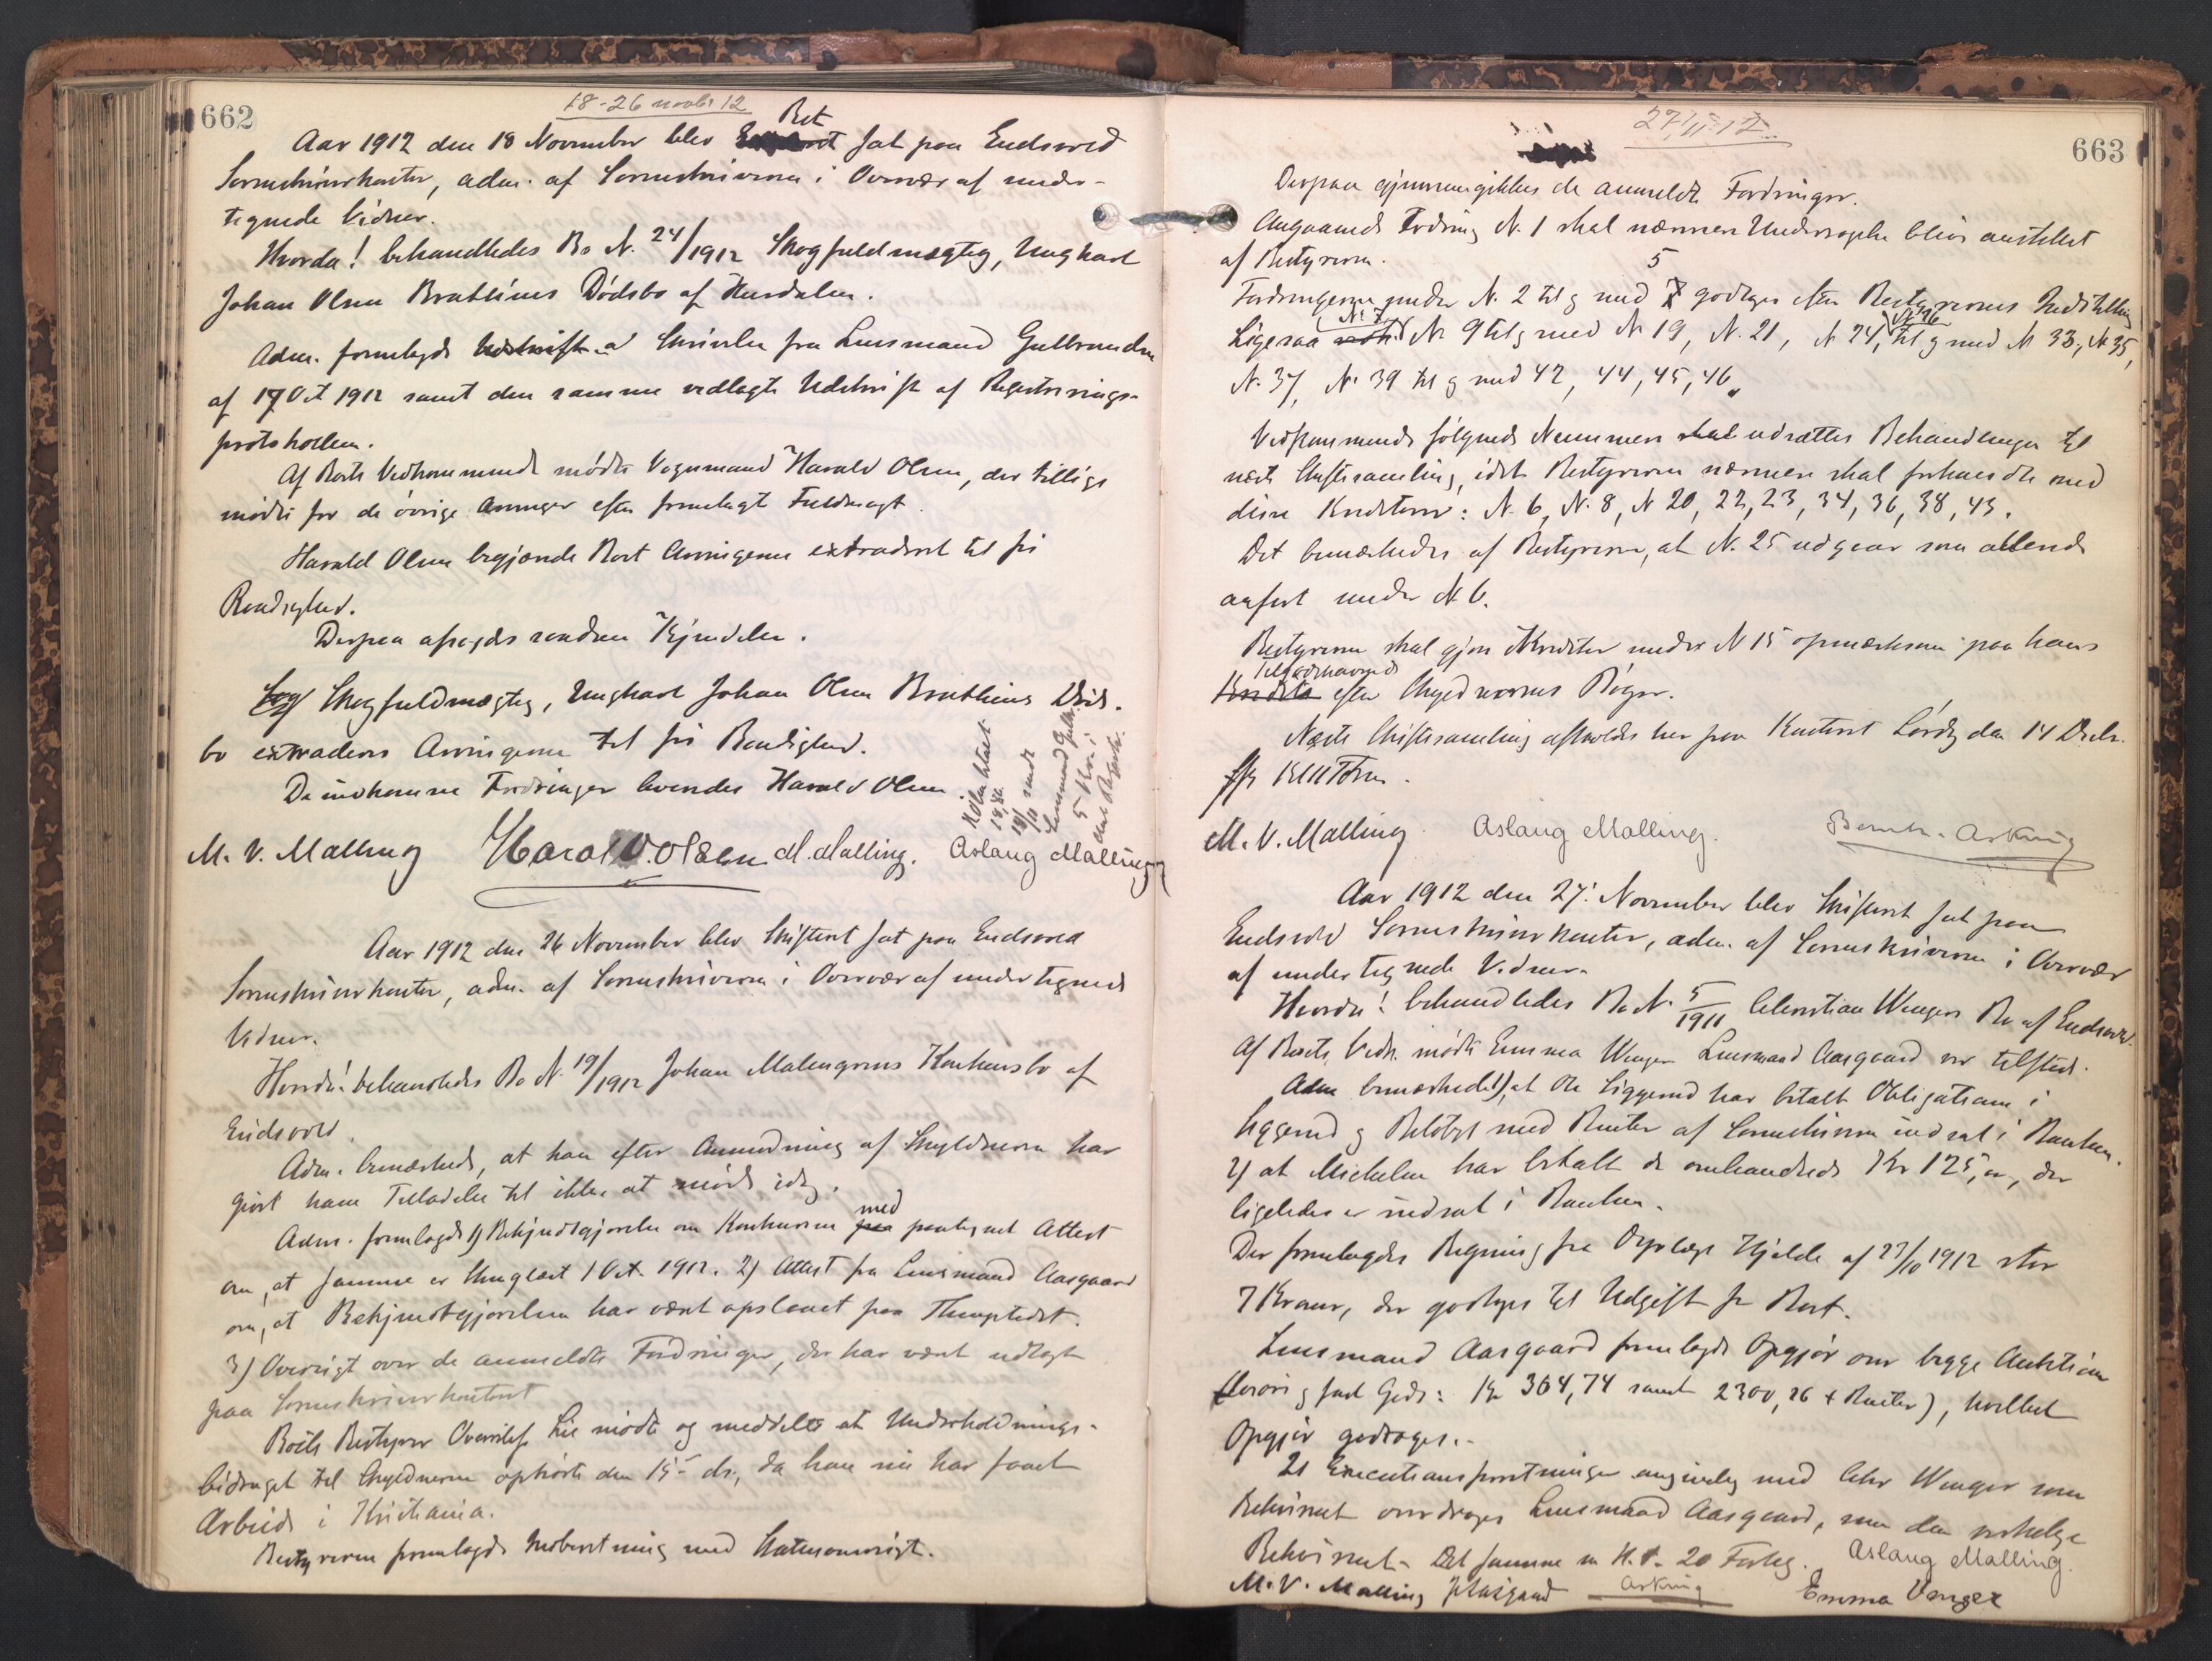 662
18-26 novbr 12
Aar 1912 den 18 November blev Ret sat paa Eidsvold
Sorenskriverkontor, adm. af Sorenskriveren i Overvær af under-
tegnede Vidner.
Hvorda! behandledes Bo N. 24/1912 Skogfuldmægtig, Ungkarl
Johan Olsen Brathens Dødsbo af Hurdalen.
Adm. fremlagde Skrivelse fra Lensmand Gulbrandsen
af 17 Oct 1912 samt den samme vedlagte Udskrift af Registrerings-
protokollen.
Af Boets Vedkommende mødte Vognmand Harald Olsen, der tillige
mødte for de övrige Arvinger efter fremlagt Fuldmagt.
Harald Olsen begjærede Boet Arvingerne extraderet til fri
Raadighed.
Derpaa afsagdes saadan Kjendelse.
Skogfuldmægtig, Ungkarl Johan Olsen Brathens Døds-
bo extraderes Arvingerne til fri Raadighed.
De indkomne Fordringer leveredes Harald Olsen.
M. V. Malling Harald Olsen M. Malling. Aslaug Malling
Aar 1912 den 26 November blev Skifteret sat paa Eidsvold
Sorenskriverkontor, adm. af Sorenskriveren i Overvær af undertegnede
Vidner.
Hvorda! behandledes Bo N. 19/1912 Johan Malmgrens Konkursbo af
Eidsvold.
Adm. bemærkede, at han efter Anmodning af Skyldneren har
givet ham Tilladelse til ikke at møde idag.
Adm. fremlagde 1) Bekjendtgjørelse om Konkursen med paategnet Attest
om, at samme er kunglæst 1 Oct. 1912. 2) Attest fra Lensmand Aasgaard
om, at Bekjendtgjørelsen har været opslaaet paa Thingstedet.
3) Oversigt over de anmeldte Fordringer, der har været udlagt
paa Sorenskriverkontoret
Boets Bestyrer Overretssf. Lie mødte og meddelte at Underholdnings-
bidraget til Skyldneren ophørte den 15 ds., da han nu har faaet
Arbeide i Kristiania.
Bestyreren fremlagde Indberetning med Statusoversigt.
27/11 12
663
Derpaa gjennemgikkes de anmeldte Fordringer.
Angaaende Fordring N. 1 skal nærmere Undersøgelse blive anstillet
af Bestyreren.
Fordringerne under N. 2 til og med 5 godtages efter Bestyrerens Indstilling
Ligesaa N. 7, N. 9 til og med N. 19, N. 21, N. 24, N. 26 til og med N. 33, N. 35,
N. 37, N. 39 til og med 42, 44, 45, 46.
Vedkommende følgende Nummere udsættes Behandlingen til
næste Skiftesamling, idet Bestyreren nærmere skal forhandle med
disse Kreditorer: N. 6, N. 8, N 20, 22, 23, 34, 36, 38, 43.
Det bemærkedes af Bestyreren, at N. 25 udgaar som allerede
anført under N. 6.
Bestyreren skal gjøre Kreditor under N 15 opmærksom paa hans
Tilgodehavende efter Skyldnerens Bøger.
Næste Skiftesamling afholdes her paa Kontoret Lørdag den 14 Decbr.
M. V. Malling. Aslaug Malling. Arking
Aar 1912 den 27. November blev Skifteret sat paa
Eidsvold Sorenskriverkontor, adm. af Sorenskriveren i Overvær
af undertegnede Vidner.
Hvorda! behandledes Bo N. 5/1911 Celerstian Wengers Bo af Eidsvold.
Af Boets Vedk. mødte Emma Wenger. Lensmand Aasgaard var tilstede.
Adm bemærkede 1) at Ole Liggerud har betalt Obligationen i
Liggerud og Beløbet med Renter af Sorenskriveren indsat i Banken.
2) at Michelsen har betalt de omhandlede Kr 125,00, der
ligeledes er indsat i Banken.
Der fremlagdes Regning fra Dyrlæge Hjelde af 27/10 1912 stor
7 Kroner, der godtages til Udgift for Boet.
Lensmand Aasgaard fremlagde Opgjør over begge Auktioner
(Løsøre og fast Gods: Kr 364,74 samt 2300,26 + Renter), hvilket
Opgjør godtoges.
21 Executionsforretninger angivelig med Wenger som
Rekvirent overdrages Lensmand Aasgaard, som den rettelige
Rekvirent. Det samme m H. t. 20 Forlig. Aslaug Malling.
M. V. Malling Aasgaard Arking Emma Venger